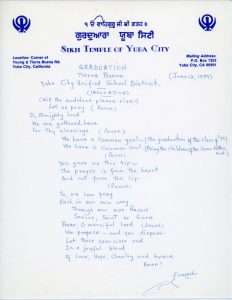 ੧ ਓ ਵਾਹਿਗੁਰੂ ਜੀ ਕੀ ਫਤਹ॥
ਗੁਰਦੁਆਰਾ ਯੂਬਾ ਸਿਟੀ
SIKH TEMPLE OF YUBA CITY
Location: Corner of
Young & Tierra Buena Rd.
Yuba City, California
Mailing Address:
P.O. Box 1393
Yuba City, CA 95991
GRADUATION
Tierra Buena (June 13, 1979)
Yuba City Unified School District.
(INVOCATION)
(Will the audience please rise)
Let us pray (Pause)
O, Almighty Lord
We are gathered here
For Thy blessings (Pause)
We have a common Goal (The graduation of the class of 79)
We have a Common Soul (Being the children of the same Father
(Pause)
You gave us this tip -
The prayer is from the heart
And not from the lip.
(Pause)
So, we can pray
Each in our own way,
Through our own
Savior, Saint or Guru
Dear O merciful Lord (Pause)
We propose - and you dispose.
Let these exercises end
In a joyful blend
Of Love, Hope, Charity and Grace
Amen!